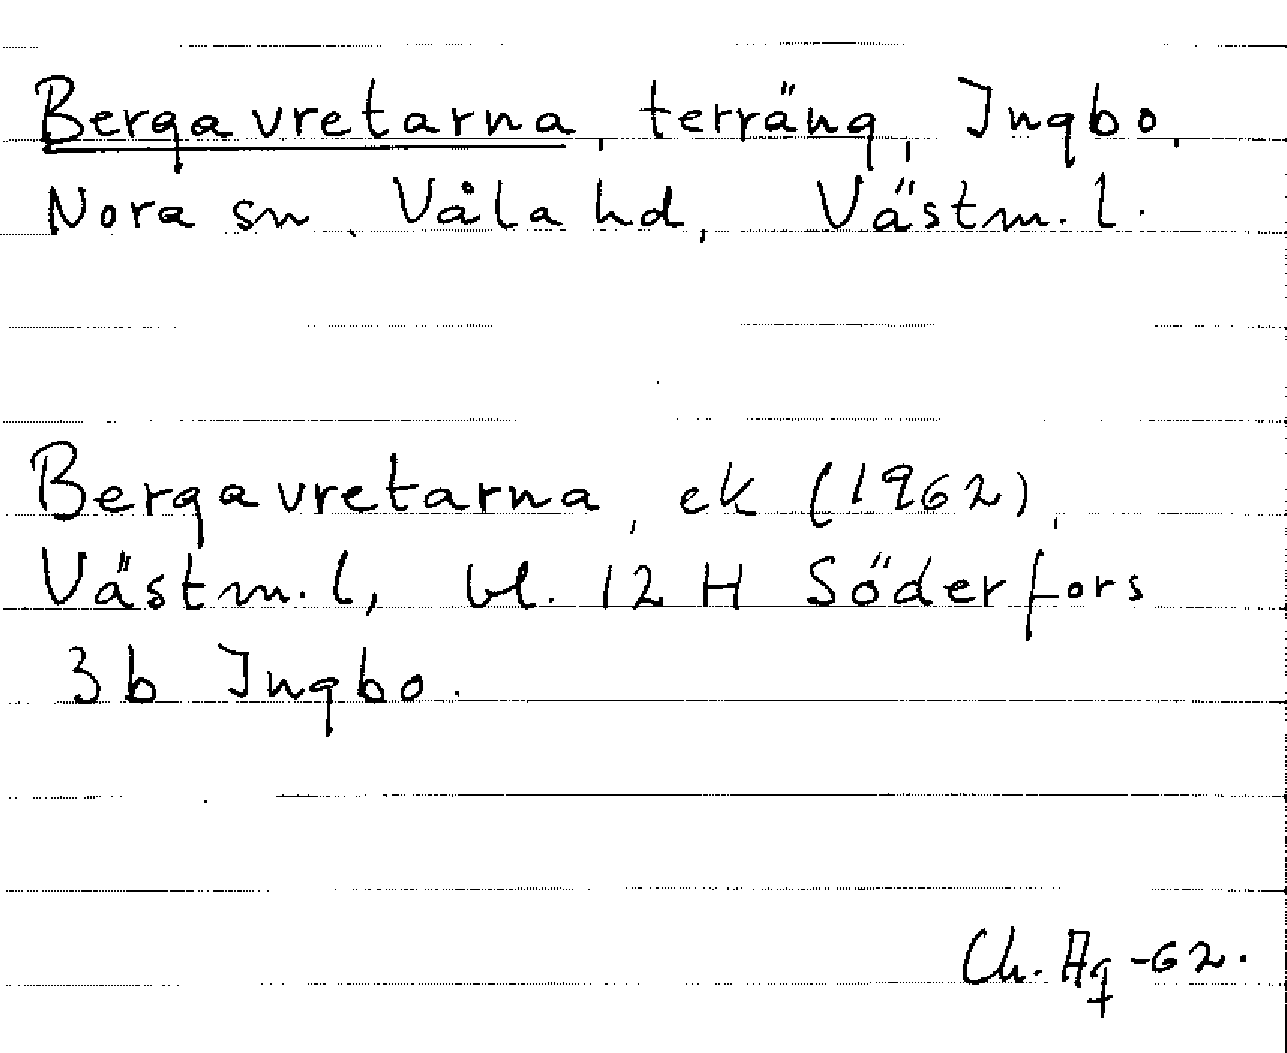 Bergavretarna, terräng, Ingbo,
Nora sn, Våla hd, Västm. l.
Bergavretarna, ek (1962),
Västm. l, bl. 12 H Söderfors
3b Ingbo.
Ch. Ag -62.